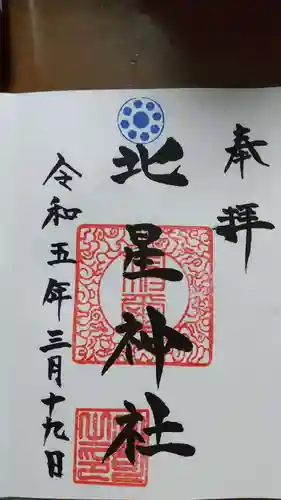 奉拝
北星神社
令和五年三月十九日